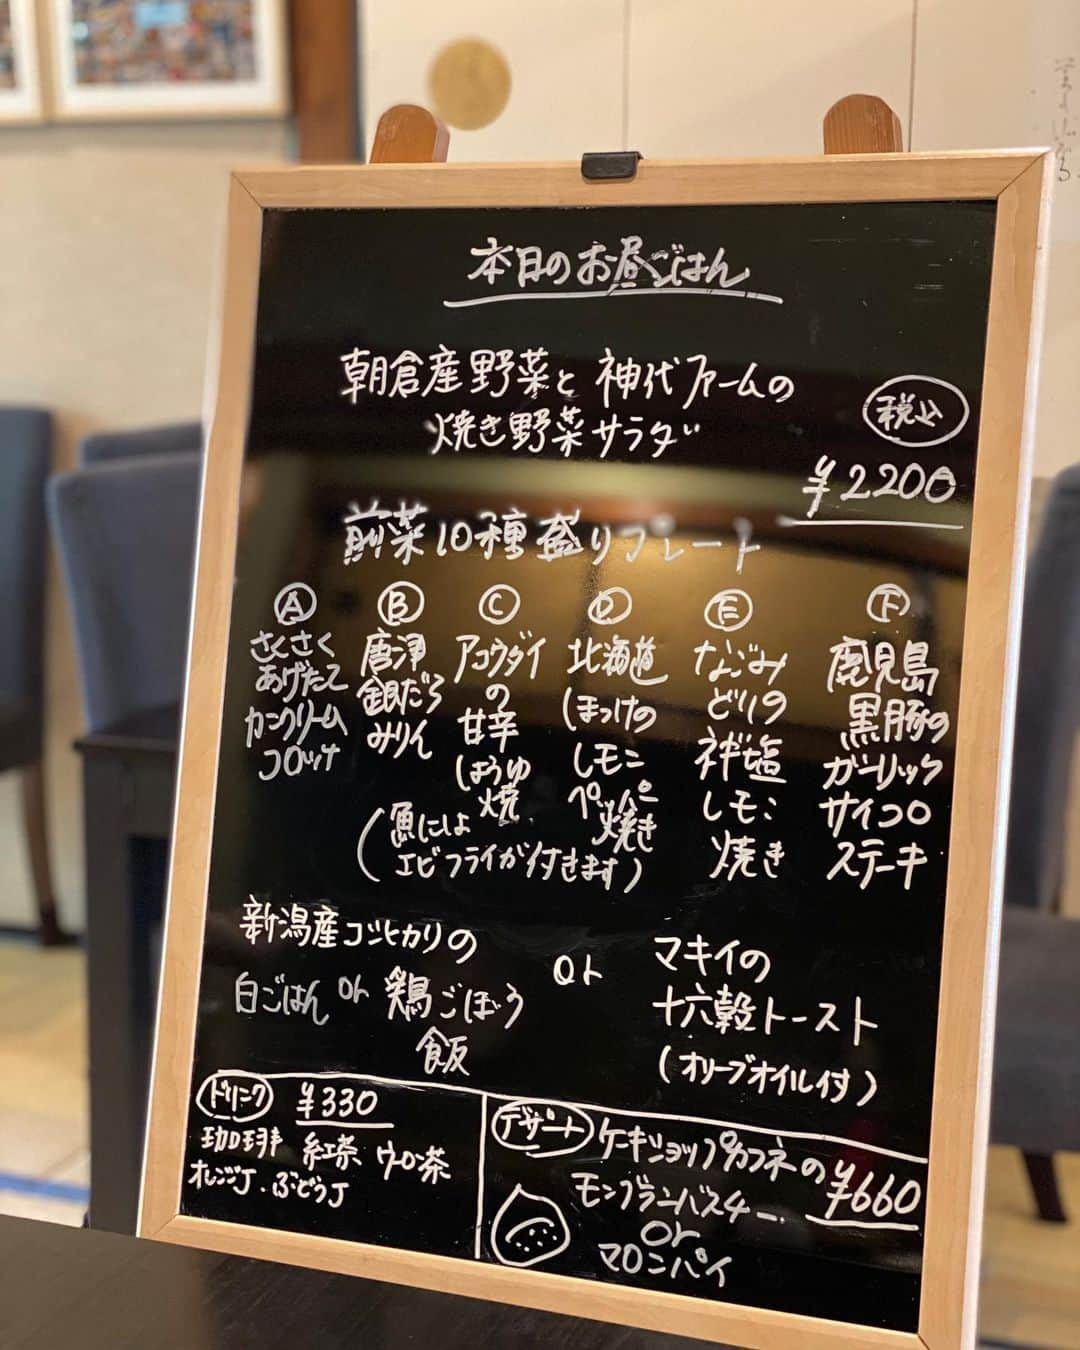 本日のお昼ごはん
朝倉産野菜と神代ファームの
焼き野菜サラダ
税込
¥2200
前菜10種盛りプレート
A
さくさく
あげたて
カニクリーム
コロッケ
B
唐津
銀だら
みりん
C
アコウダイ
の
甘辛
しょうゆ
焼
D
北海道
ほっけの
レモン
ペッパー
焼き
(魚には
エビフライが付きます)
E
なごみ
どりの
ネギ塩
レモン
焼き
F
鹿児島
黒豚の
ガーリック
サイコロ
ステーキ
新潟産コシヒカリの
白ごはん or 鶏ごぼう
飯
or
マキイの
十六穀トースト
(オリーブオイル付)
ドリンク ¥330
珈琲 紅茶 ウーロン茶
オレンジJ.ぶどうJ
デザート ケーキショップカフネの
¥660
モンブランバスチー
or
マロンパイ